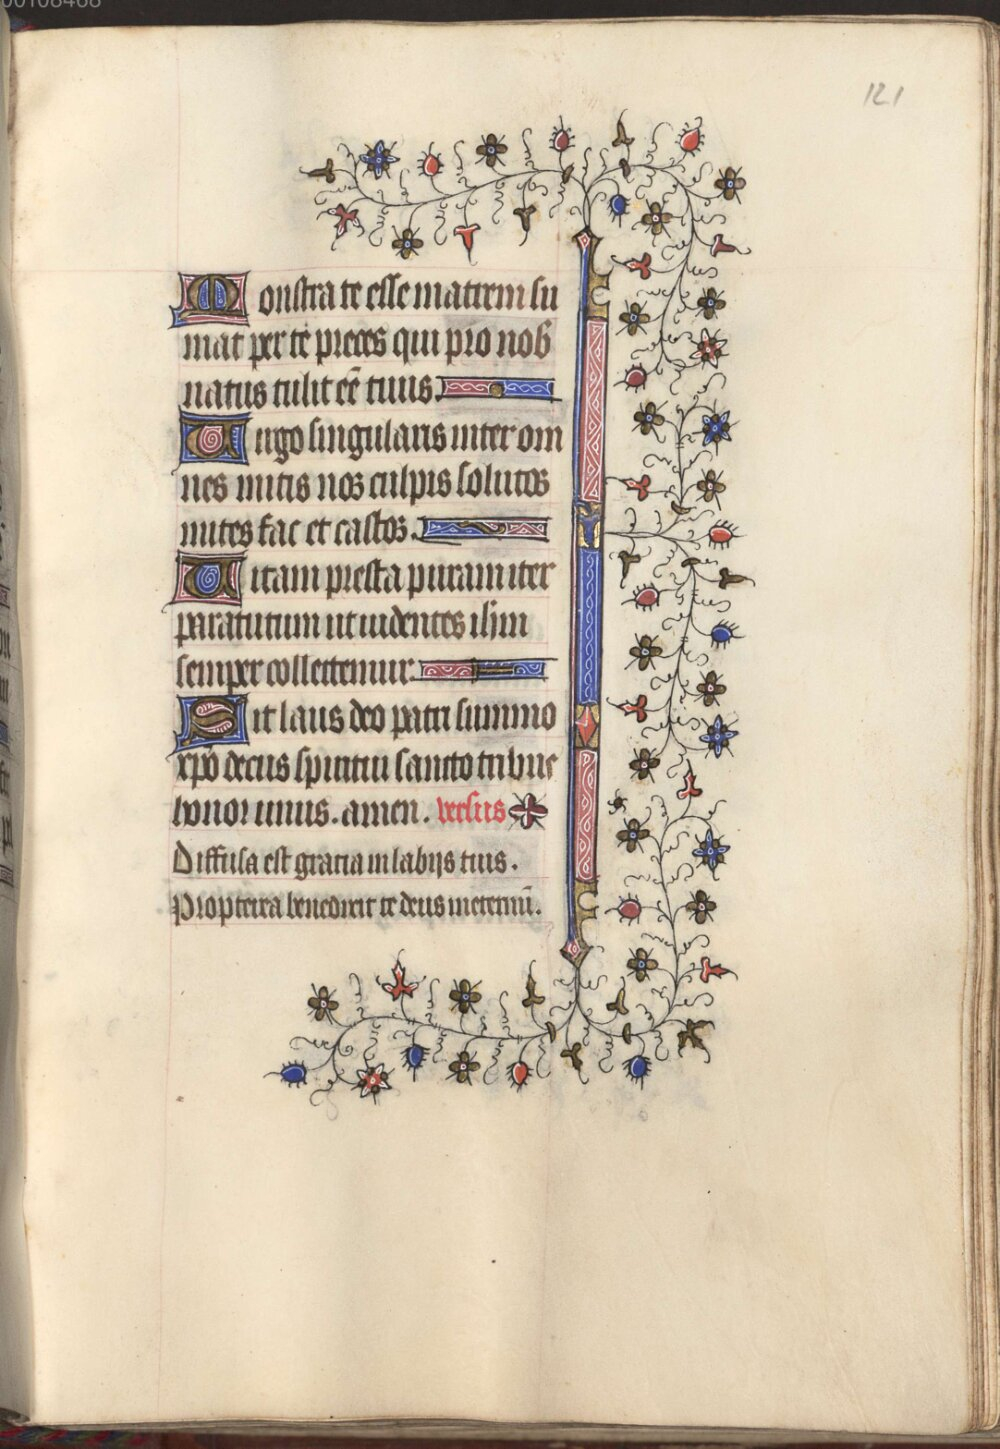 00108468
121
Monstra te esse matrem su
mat per te preces qui pro nob̄
natus tulit eē tuus.
Uirgo singularis inter om
nes mitis nos culpis solutos
mites fac et castos.
Uitam presta puram iter
para tutum ut uidentes ih̄m
semper collectemur.
Sit laus deo patri summo
xp̄o decus spiritui sancto tribus
honor unus. amen. versus
Diffusa est gracia in labijs tuis.
Propterea benedixit te deus ineternū.